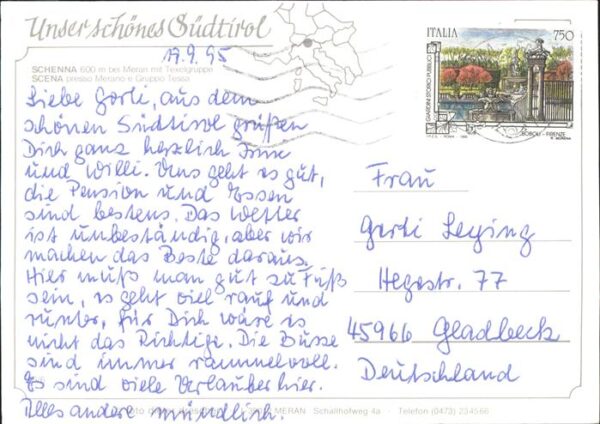 Unser schönes Südtirol
17.9.95
SCHENNA 600 m bei Meran mit Texelgruppe
SCENA presso Merano e Gruppo Tessa
Liebe Gerti, aus dem
schönen Südtirol grüßen
Dich ganz herzlich Irene
und Willi. Uns geht es gut,
die Pension und Essen
sind bestens. Das Wetter
ist unbeständig, aber wir
machen das Beste daraus.
Hier muß man gut zu Fuß
sein, es geht viel rauf und
runter, für Dich wäre es
nicht das Richtige. Die Busse
sind immer rammelvoll.
Es sind viele Verlauber hier.
Alles andere mündlich.
MERAN Schallhofweg 4a - Telefon (0473) 234566
ITALIA 750
GIARDINI STORICI PUBBLICI
BOBOLI - FIRENZE
Frau
Gerti Leying
Hegestr. 77
45966 Gladbeck
Deutschland